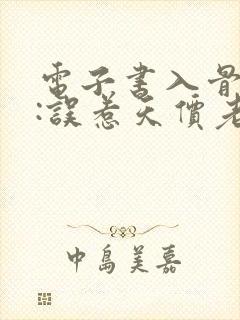 電子書入骨
:誤惹天價老
中島美嘉